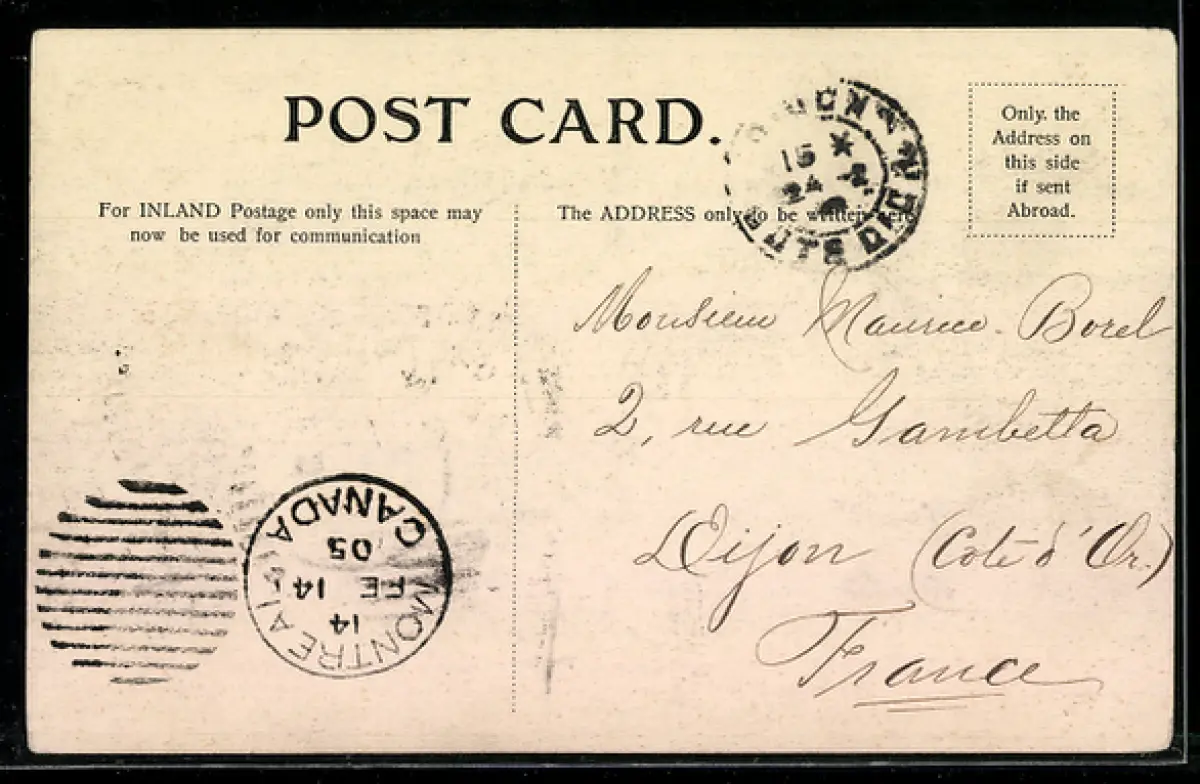 POST CARD.
Only. the
Address on
this side
if sent
Abroad.
For INLAND Postage only this space may
now be used for communication
The ADDRESS only to be written here
15 *
24
COTE D'OR
Monsieur Maurice Borel
2, rue Gambetta
Dijon (Cote d'Or.)
France
MONTREAL
14
FE 14
05
CANADA